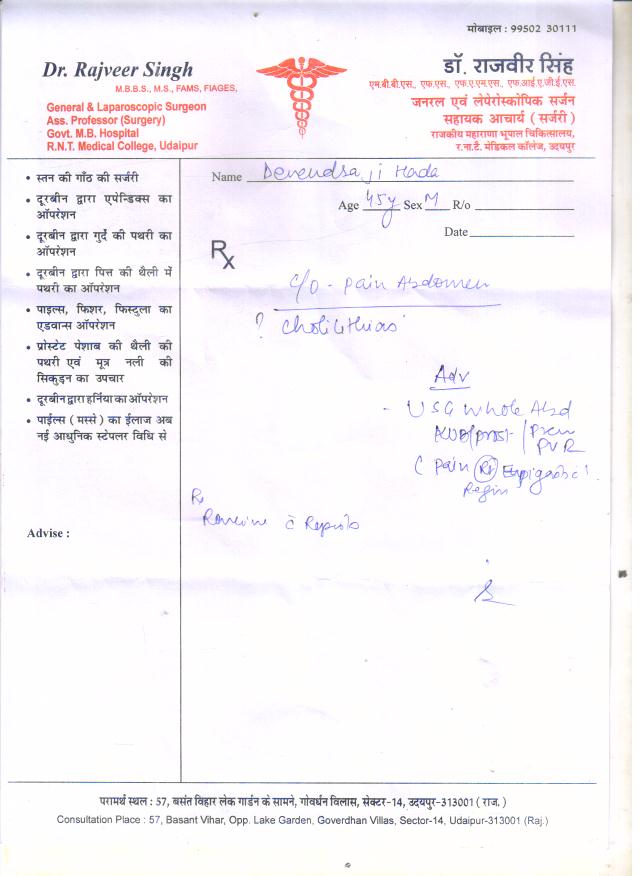 मोबाइल : 99502 30111
Dr. Rajveer Singh
M.B.B.S., M.S., FAMS, FIAGES,
General & Laparoscopic Surgeon
Ass. Professor (Surgery)
Govt. M.B. Hospital
R.N.T. Medical College, Udaipur
डॉ. राजवीर सिंह
एम.बी.बी.एस., एफ.एस., एफ.ए.एम.एस., एफ.आई.ए.जी.ई.एस.
जनरल एवं लेपेरोस्कोपिक सर्जन
सहायक आचार्य ( सर्जरी )
राजकीय महाराणा भूपाल चिकित्सालय,
र.ना.टै. मेडिकल कॉलेज, उदयपुर
• स्तन की गाँठ की सर्जरी
• दूरबीन द्वारा एपेन्डिक्स का
ऑपरेशन
• दूरबीन द्वारा गुर्दे की पथरी का
ऑपरेशन
• दूरबीन द्वारा पित्त की थैली में
पथरी का ऑपरेशन
• पाइल्स, फिशर, फिस्टुला का
एडवान्स ऑपरेशन
• प्रोस्टेट पेशाब की थैली की
पथरी एवं मूत्र नली की
सिकुड़न का उपचार
• दूरबीन द्वारा हर्निया का ऑपरेशन
• पाईल्स ( मस्से ) का ईलाज अब
नई आधुनिक स्टेपलर विधि से
Advise :
Name Devendsa ji Hada
Age 45y Sex M R/o
Date
Rx
c/o - Pain Abdomen
?
Adv
- USG Whole Abd
KUB/prost- /
PVR
Pain Rt
Region
Rx
c Reports
परामर्थ स्थल : 57, बसंत विहार लेक गार्डन के सामने, गोवर्धन विलास, सेक्टर-14, उदयपुर-313001 ( राज. )
Consultation Place : 57, Basant Vihar, Opp. Lake Garden, Goverdhan Villas, Sector-14, Udaipur-313001 (Raj.)